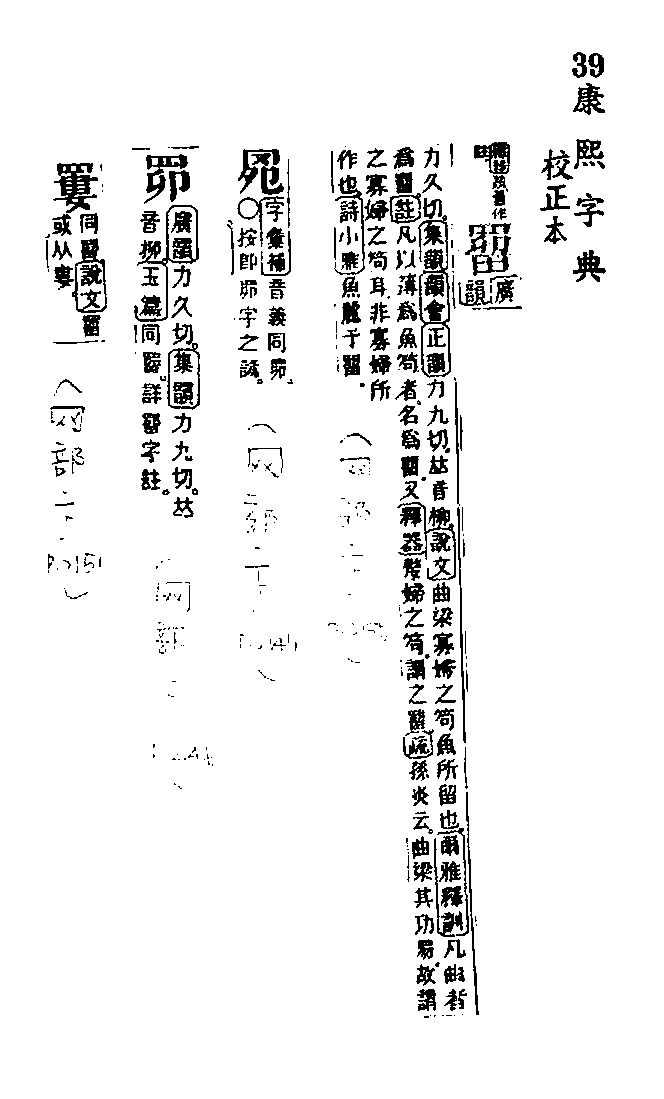 39
康熙字典
校正本
罶
廣韻
力久切。集韻韻會正韻力九切。𠀤音柳。說文曲梁寡婦之笱魚所留也。爾雅釋訓凡曲者
爲罶。註凡以薄爲魚笱者。名爲罶。又釋器嫠婦之笱。謂之罶。疏孫炎云。曲梁其功易。故謂
之寡婦之笱耳。非寡婦所
作也。詩小雅魚麗于罶。
字彙補音義同䍘。
〇按卽䍘字之譌。
䍘
廣韻力久切。集韻力九切。𠀤
音柳。玉篇同罶。詳罶字註。
同罶。說文罶
或从婁。
网部
网部
网部
网部